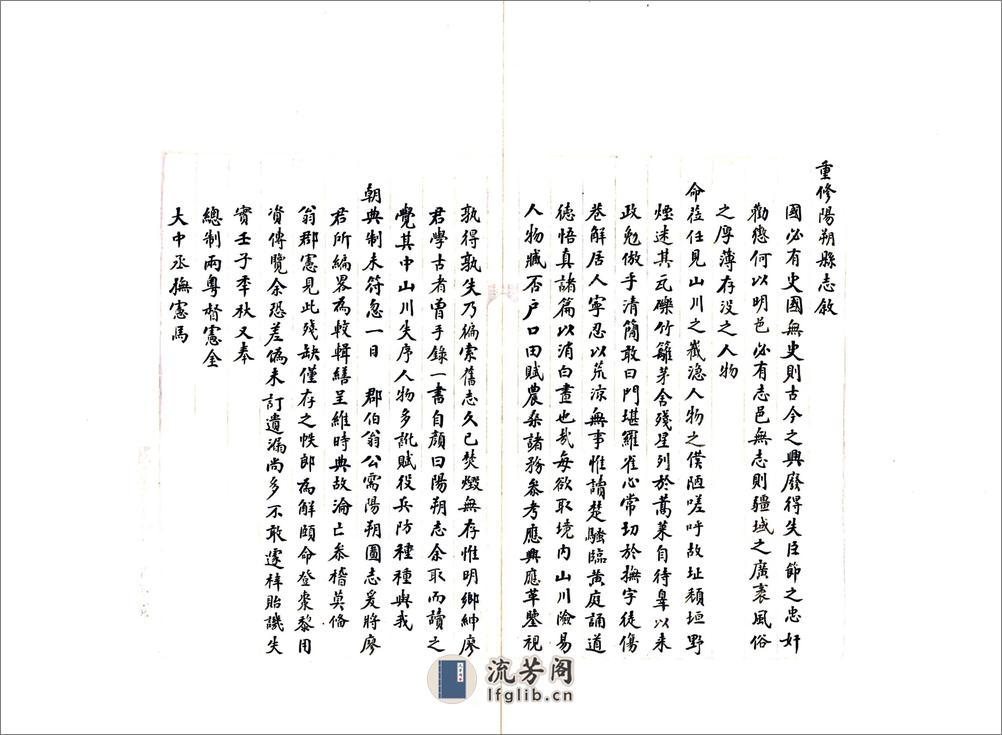 重修陽朔縣志敘
國必有史國無史則古今之興廢得失臣節之忠奸
勸懲何以明邑必有志邑無志則疆域之廣袤風俗
之厚薄存沒之人物
命莅任見山川之巉漁人物之僕陋嗟呼故址頹垣野
煙迷其瓦礫竹籬茅舍殘星列於蒿萊自待辠以来
政勉倣乎清簡敢曰門堪羅雀心常切於撫字徒傷
巷解居人寧忍以荒涼無事惟讀楚騷臨黃庭誦道
德悟真諸篇以消白晝也哉每欲取境內山川險易
人物臧否户口田賦農桑諸務參考應興應革鑒視
孰得孰失乃徧索舊志久已焚燬無存惟明鄉紳廖
君學古者曾手錄一書自顏曰陽朔志余取而讀之
覺其中山川失序人物多訛賦役兵防種種與我
朝典制未符忽一日 郡伯翁公需陽朔圖志爰將廖
君所編畧為較輯繕呈維時典故淪亡叅稽莫俻
翁郡憲見此殘缺僅存之帙郎為解頤命登棗黎用
資傳覽余恐差僞未訂遺漏尚多不敢遽梓貽譏失
實壬子季秋又奉
總制兩粵督憲金
大中丞撫憲馬
流芳阁
lfglib.cn